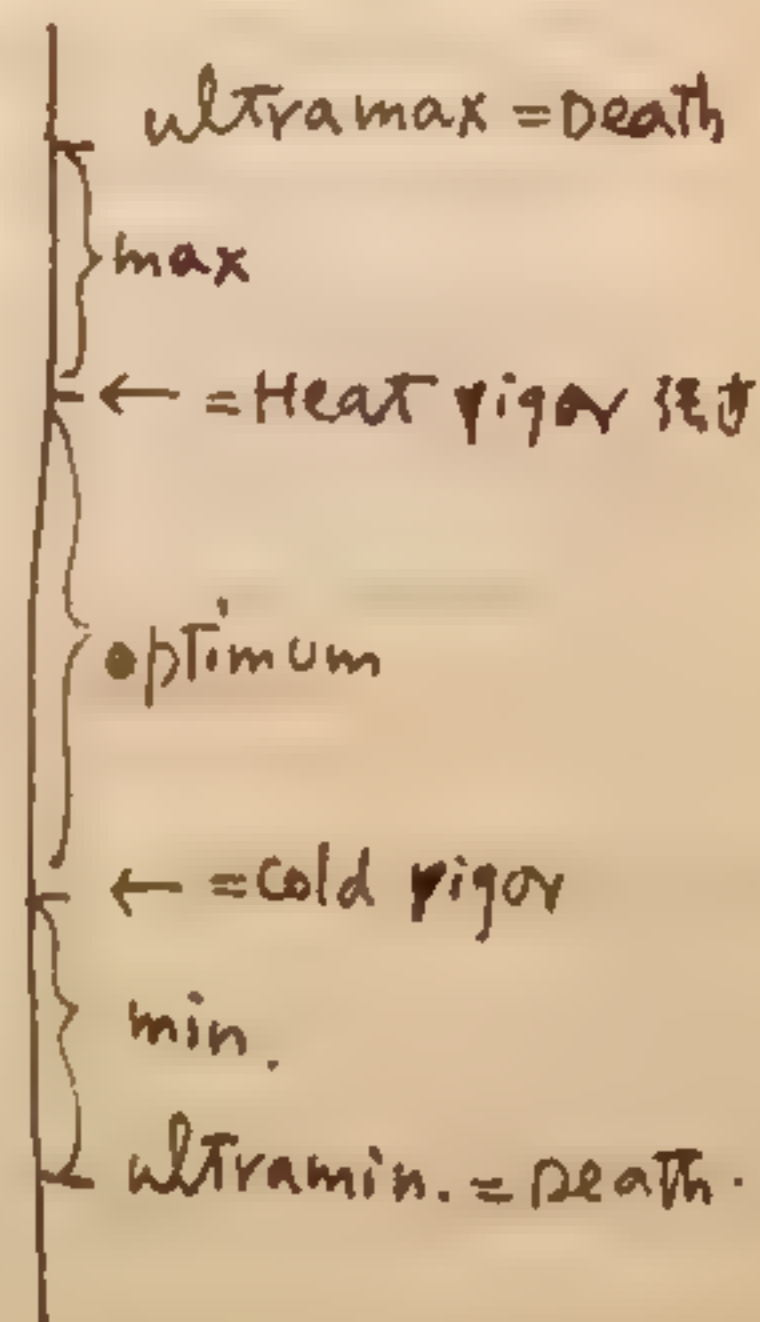 ultramax = Death
max
← = Heat rigor
optimum
← = Cold rigor
min.
ultramin. = Death.